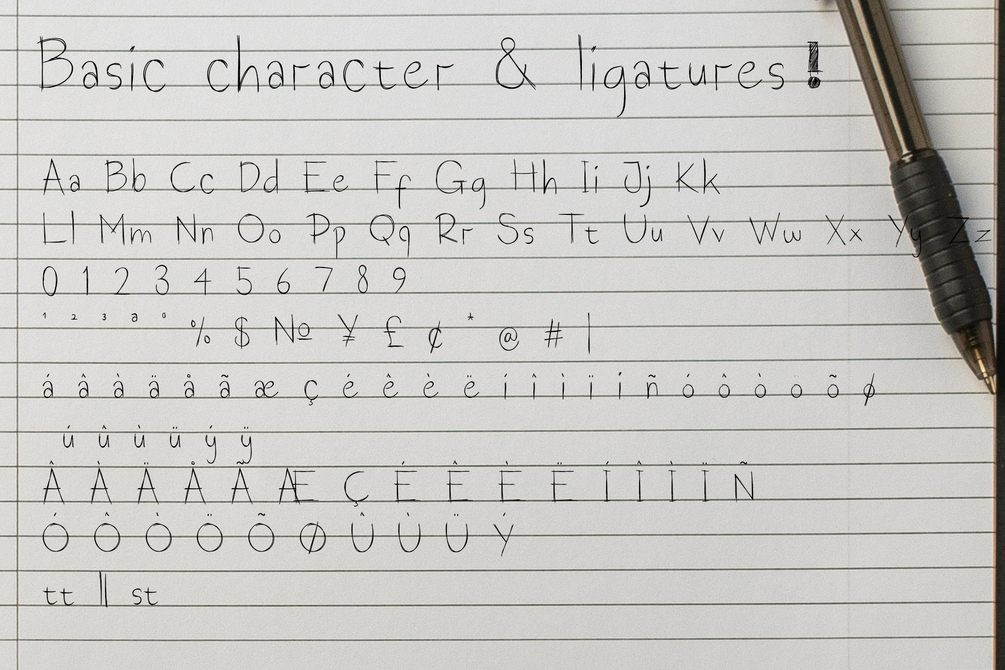 Basic character & ligatures!
Aa Bb Cc Dd Ee Ff Gg Hh Ii Jj Kk
Ll Mm Nn Oo Pp Qq Rr Ss Tt Uu Vv Ww Xx Yy Zz
0 1 2 3 4 5 6 7 8 9
¹ ² ³ ª º % $ № ¥ £ ¢ * @ # |
á â à ä å ã æ ç é ê è ë í î ì ï í ñ ó ô ò o õ ø
ú û ù ü ý ÿ
Â À Ä Å Ã Æ Ç É Ê È Ë Í Î Ì Ï Ñ
Ó Ô Ò Ö Õ Ø Û Ù Ü Ý
tt ll st